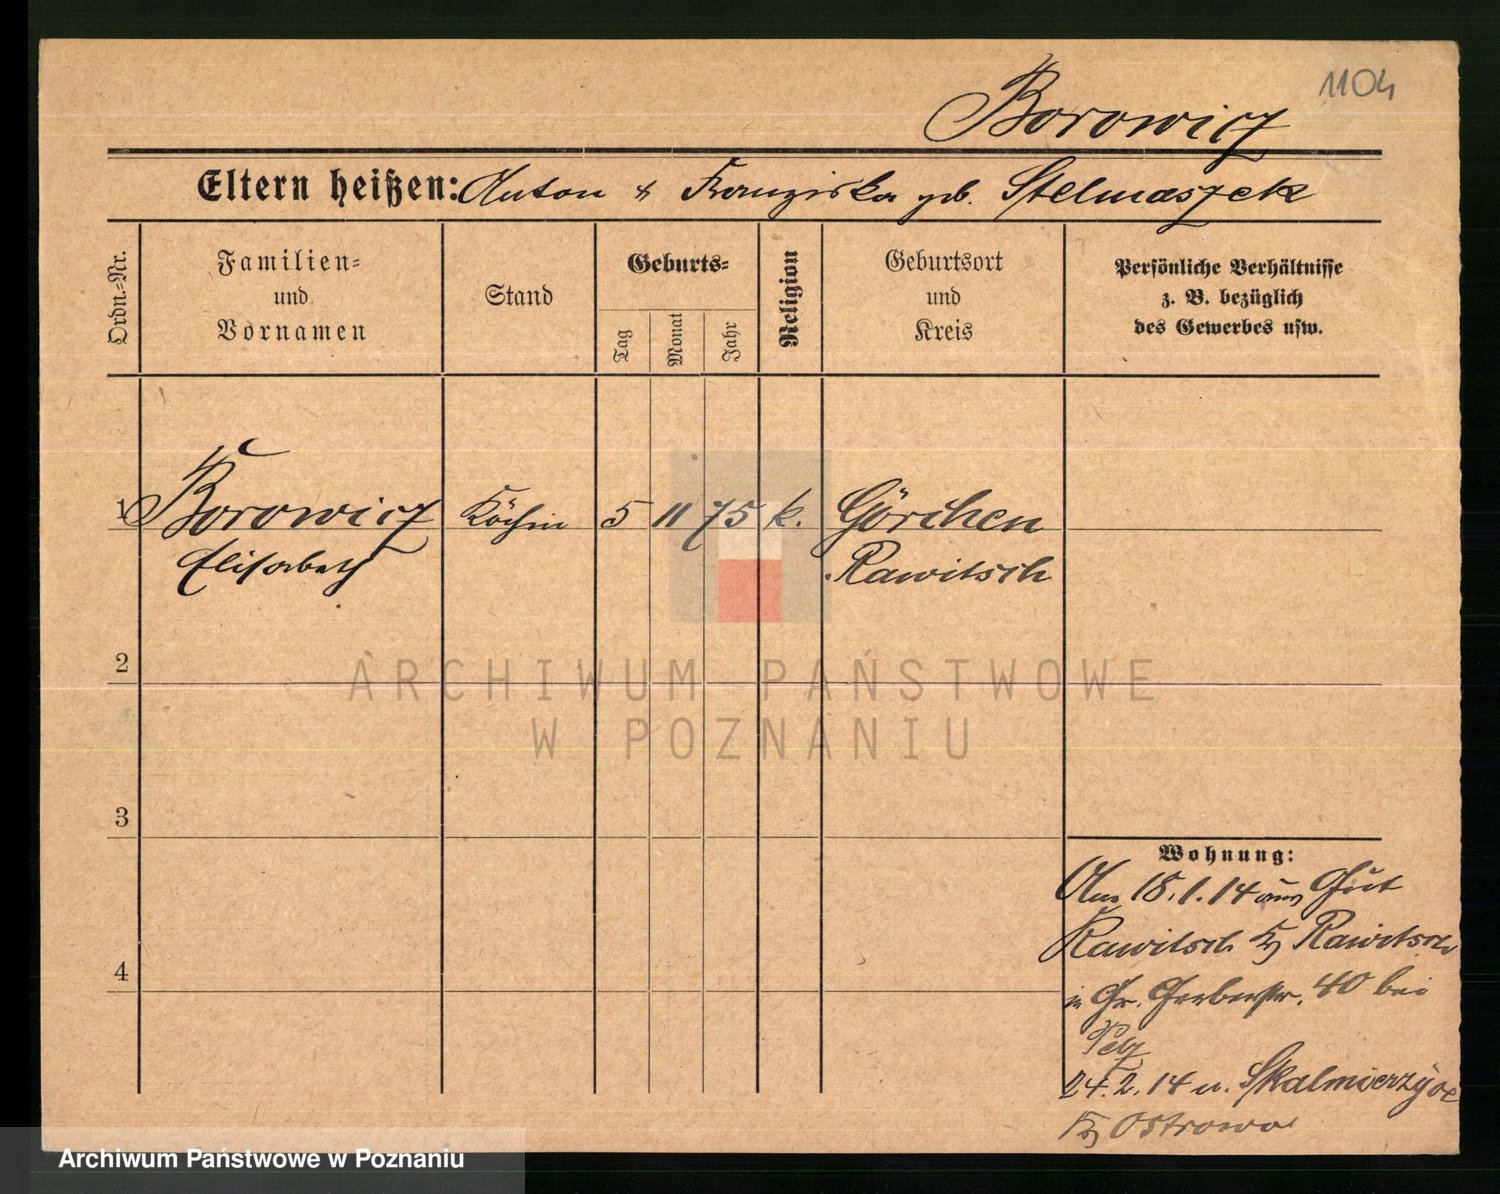 1104
Borowicz
Eltern heißen: Anton & Franziska geb. Stelmaszek
Ordn.-Nr.
Familien-
und
Vornamen
Stand
Geburts-
Tag
Monat
Jahr
Religion
Geburtsort
und
Kreis
Persönliche Verhältnisse
z. B. bezüglich
des Gewerbes usw.
1 Borowicz Köchin 5 11 75 k. Görchen
Elisabeth Rawitsch
2
3
4
Wohnung:
Am 18.1.14 aus Gut
Rawitsch Kr Rawitsch
in Gr. Gerberstr. 40 bei
Pelz
24.2.14 n. Skalmierzyce
Kr Ostrowo
ARCHIWUM PAŃSTWOWE
W POZNANIU
Archiwum Państwowe w Poznaniu